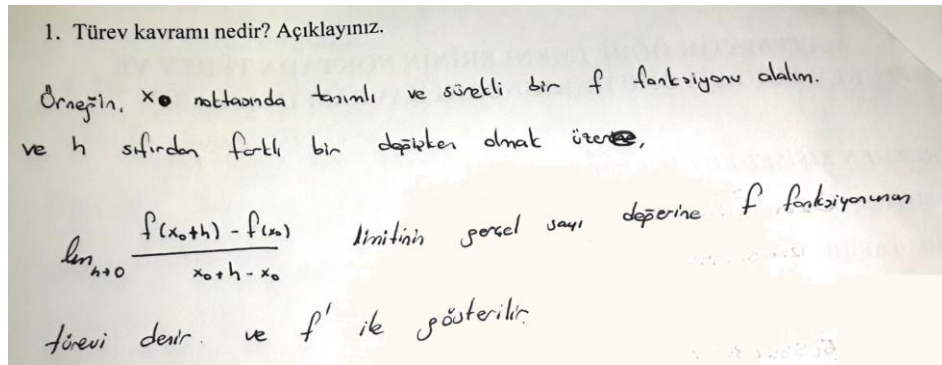 1. Türev kavramı nedir? Açıklayınız.
Örneğin, x₀ noktasında tanımlı, ve sürekli bir f fonksiyonu alalım.
ve h sıfırdan farklı bir değişken olmak üzere,
lim h→0 f(x₀+h) - f(x₀) / x₀+h-x₀ limitinin gerçel sayı değerine f fonksiyonunun
türevi denir. ve f' ile gösterilir.